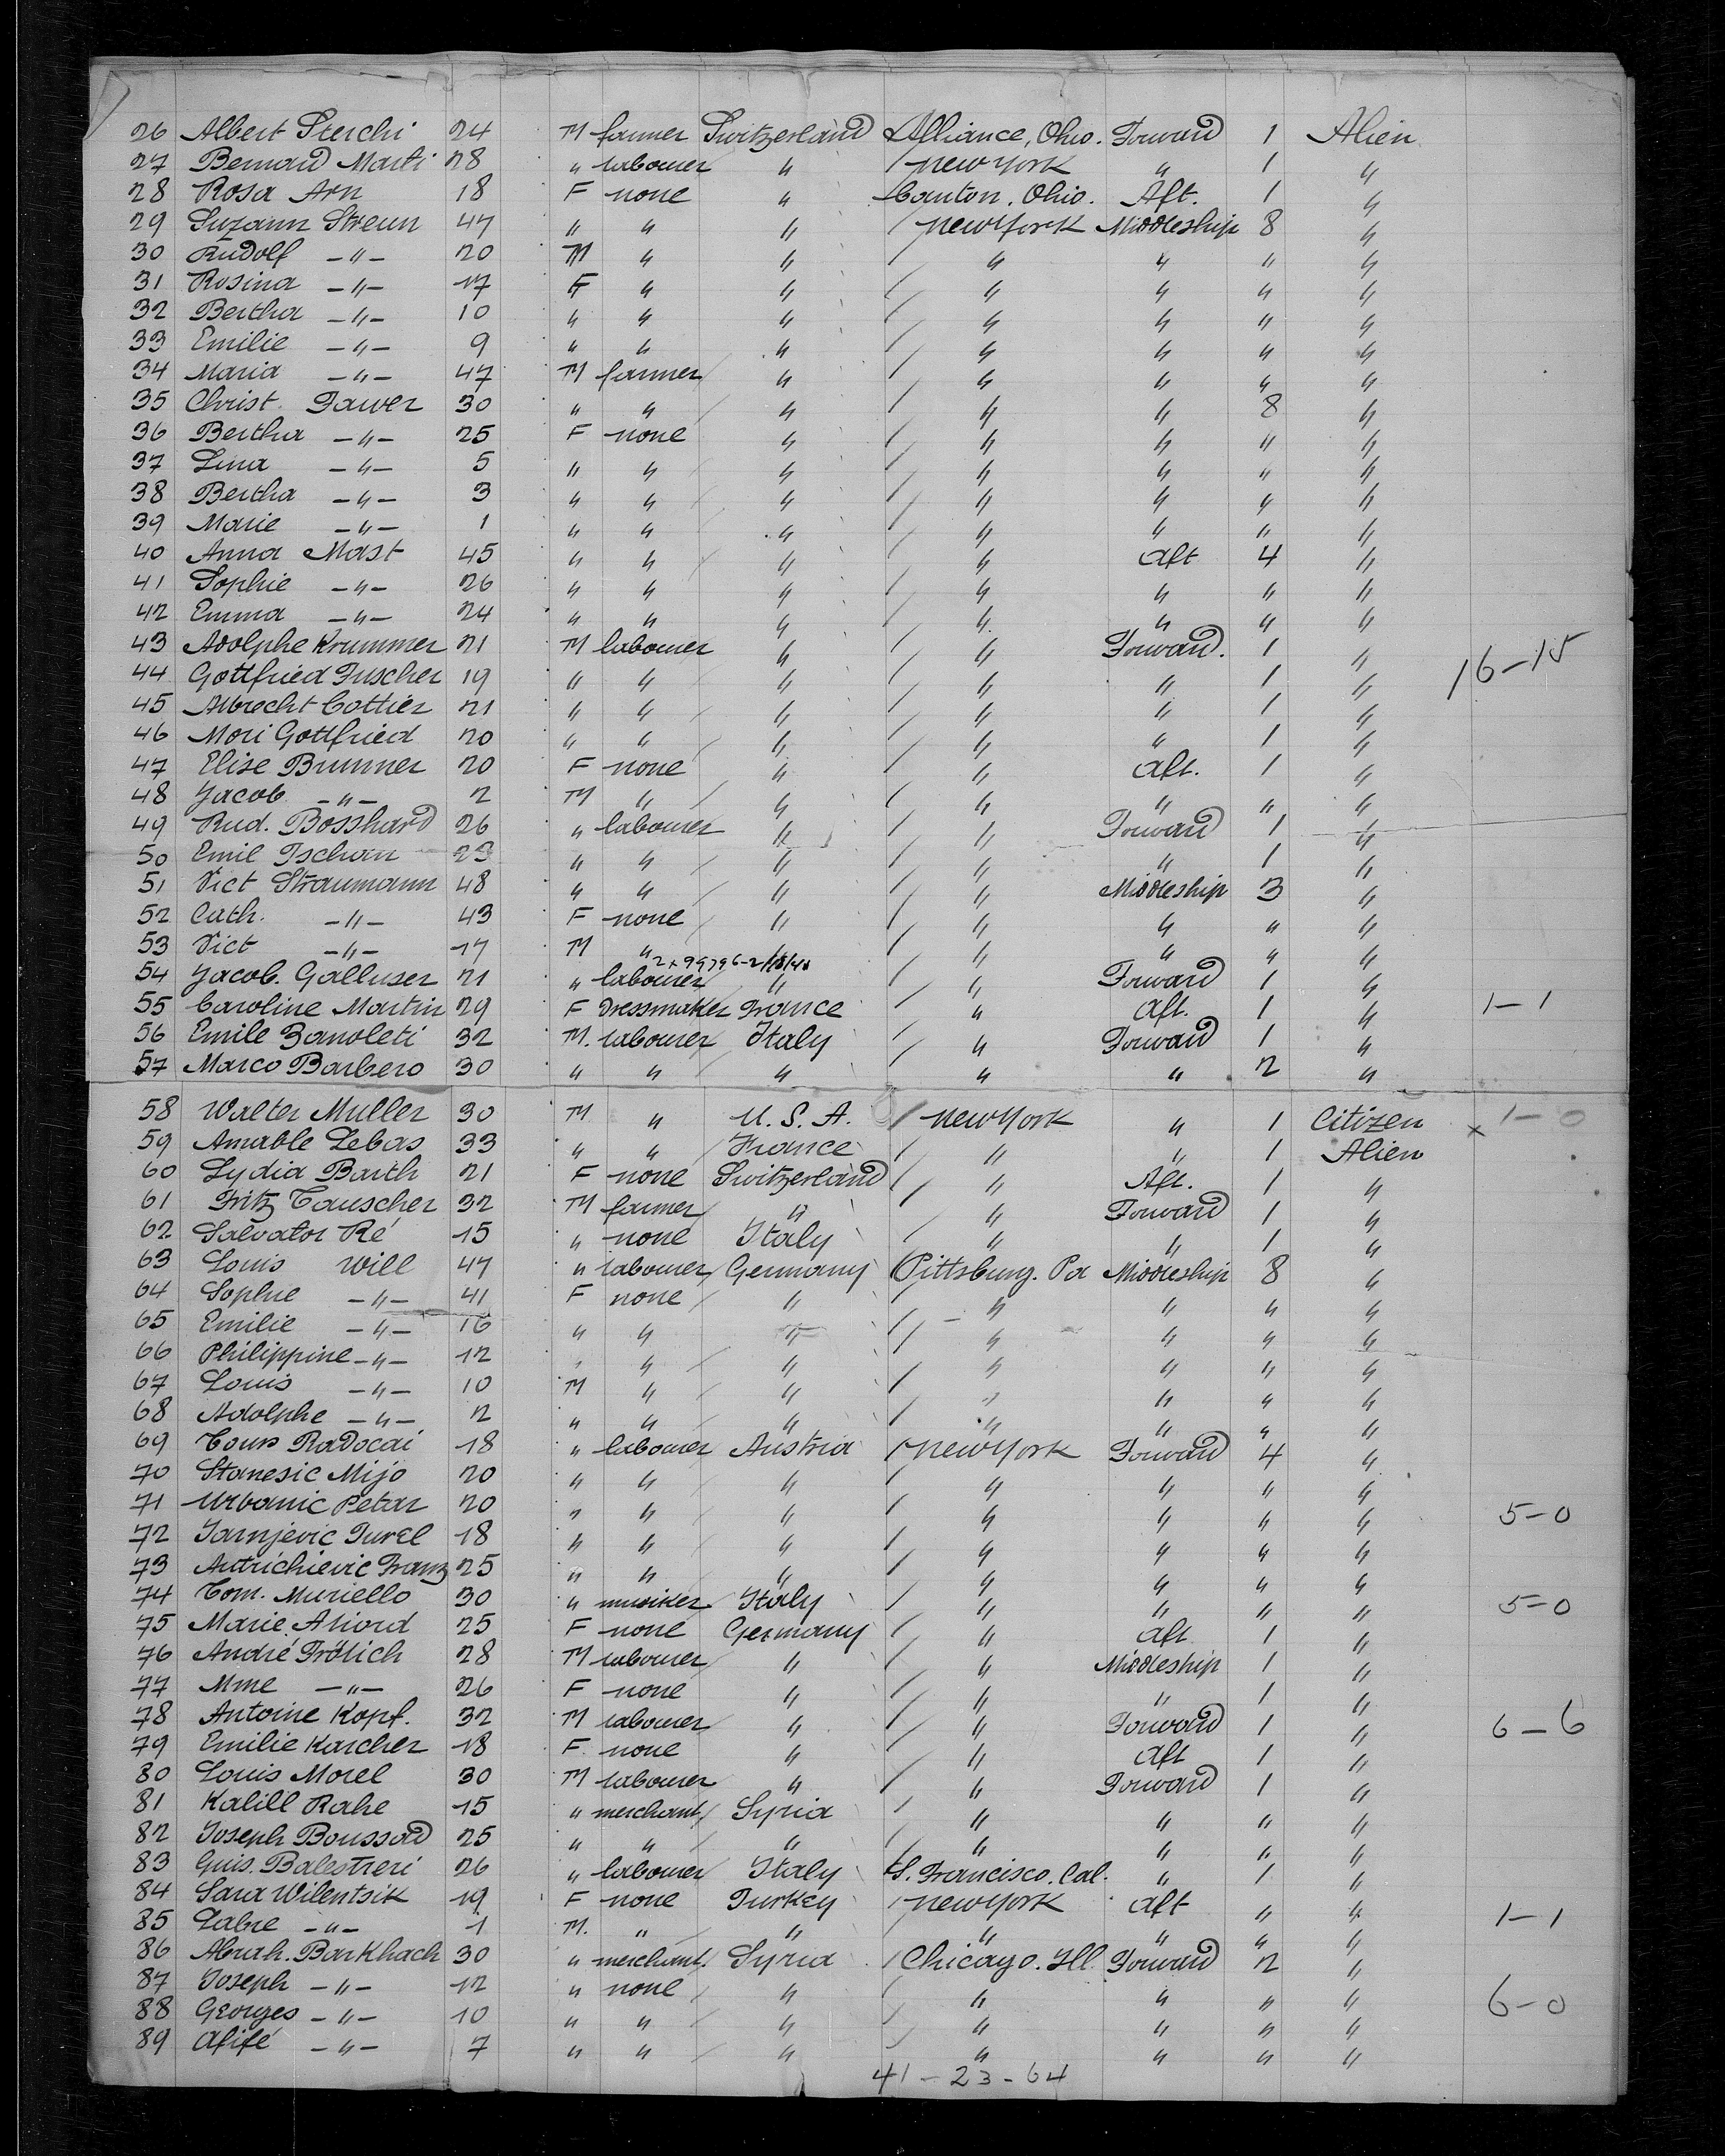 26 Albert Sterchi 24 M farmer Switzerland Alliance, Ohio. Forward 1 Alien
27 Bernard Marti 28 " labourer " New York " 1 "
28 Rosa Arn 18 F none " Canton, Ohio. Aft. 1 "
29 Suzann Streun 47 " " " New York Middleship 8 "
30 Rudolf -"- 20 M " " " " " "
31 Rosina -"- 17 F " " " " " "
32 Bertha -"- 10 " " " " " " "
33 Emilie -"- 9 " " " " " " "
34 Maria -"- 47 M farmer " " " " "
35 Christ. Tawer 30 " " " " " 8 "
36 Bertha -"- 25 F none " " " " "
37 Lina -"- 5 " " " " " " "
38 Bertha -"- 3 " " " " " " "
39 Marie -"- 1 " " " " " " "
40 Anna Mast 45 " " " " Aft 4 "
41 Sophie -"- 26 " " " " " " "
42 Emma -"- 24 " " " " " " "
43 Adolphe Krummer 21 M labourer " " Forward. 1 "
44 Gottfried Fuscher 19 " " " " " 1 " 16-15
45 Albrecht Cottier 21 " " " " " 1 "
46 Mori Gottfried 20 " " " " " 1 "
47 Elise Brunner 20 F none " " Aft. 1 "
48 Jacob -"- 2 M " " " " " "
49 Rud. Bosshard 26 " labourer " " Forward 1 "
50 Emil Tschan 23 " " " " " 1 "
51 Vict Straumann 48 " " " " Middleship 3 "
52 Cath. -"- 43 F none " " " " "
53 Vict -"- 17 M " " " " " "
54 Jacob. Galluser 21 " labourer " " Forward 1 "
55 Caroline Martin 29 F Dressmaker France " Aft. 1 " 1-1
56 Emile Zanoleti 32 M. labourer Italy " Forward 1 "
57 Marco Barbero 30 " " " " " 2 "
58 Walter Muller 30 M " U.S.A. New York " 1 Citizen x 1-0
59 Amable Lebas 33 " " France " " 1 Alien
60 Lydia Barth 21 F none Switzerland " Aft. 1 "
61 Fritz Tauscher 32 M farmer " " Forward 1 "
62 Salvator Ré 15 " none Italy " " 1 "
63 Louis Will 47 " labourer Germany Pittsburg. Pa Middleship 8 "
64 Sophie -"- 41 F none " " " " "
65 Emilie -"- 16 " " " " " " "
66 Philippine -"- 12 " " " " " " "
67 Louis -"- 10 M " " " " " "
68 Adolphe -"- 2 " " " " " " "
69 Radocai 18 " labourer Austria New York Forward 4 "
70 Stanesic Mijo 20 " " " " " " "
71 Urbanic Petar 20 " " " " " " " 5-0
72 Jarnjevic Jurel 18 " " " " " " "
73 Antrichievic Franz 25 " " " " " " "
74 Tom. Muriello 30 " musiker Italy " " " " 5-0
75 Marie 25 F none Germany " Aft 1 "
76 André Frölich 28 M labourer " " Middleship 1 "
77 Mme -"- 26 F none " " " 1 "
78 Antoine Kopf. 32 M labourer " " Forward 1 " 6-6
79 Emilie Karcher 18 F. none " " Aft 1 "
80 Louis Morel 30 M labourer " " Forward 1 "
81 Kalill Rahe 15 " merchant Syria " " " "
82 Joseph Boussad 25 " " " " " " "
83 Guis. Balestreri 26 " labourer Italy S. Francisco. Cal. " 1 "
84 Sara Wilentsik 19 F none Turkey New York Aft " " 1-1
85 -"- 1 M. " " " " " "
86 Abrah. Barkhach 30 " merchant. Syria Chicago. Ill. Forward 2 "
87 Joseph -"- 12 " none " " " " "
88 Georges -"- 10 " " " " " " " 6-0
89 Afifé -"- 7 " " " " " " "
41-23-64